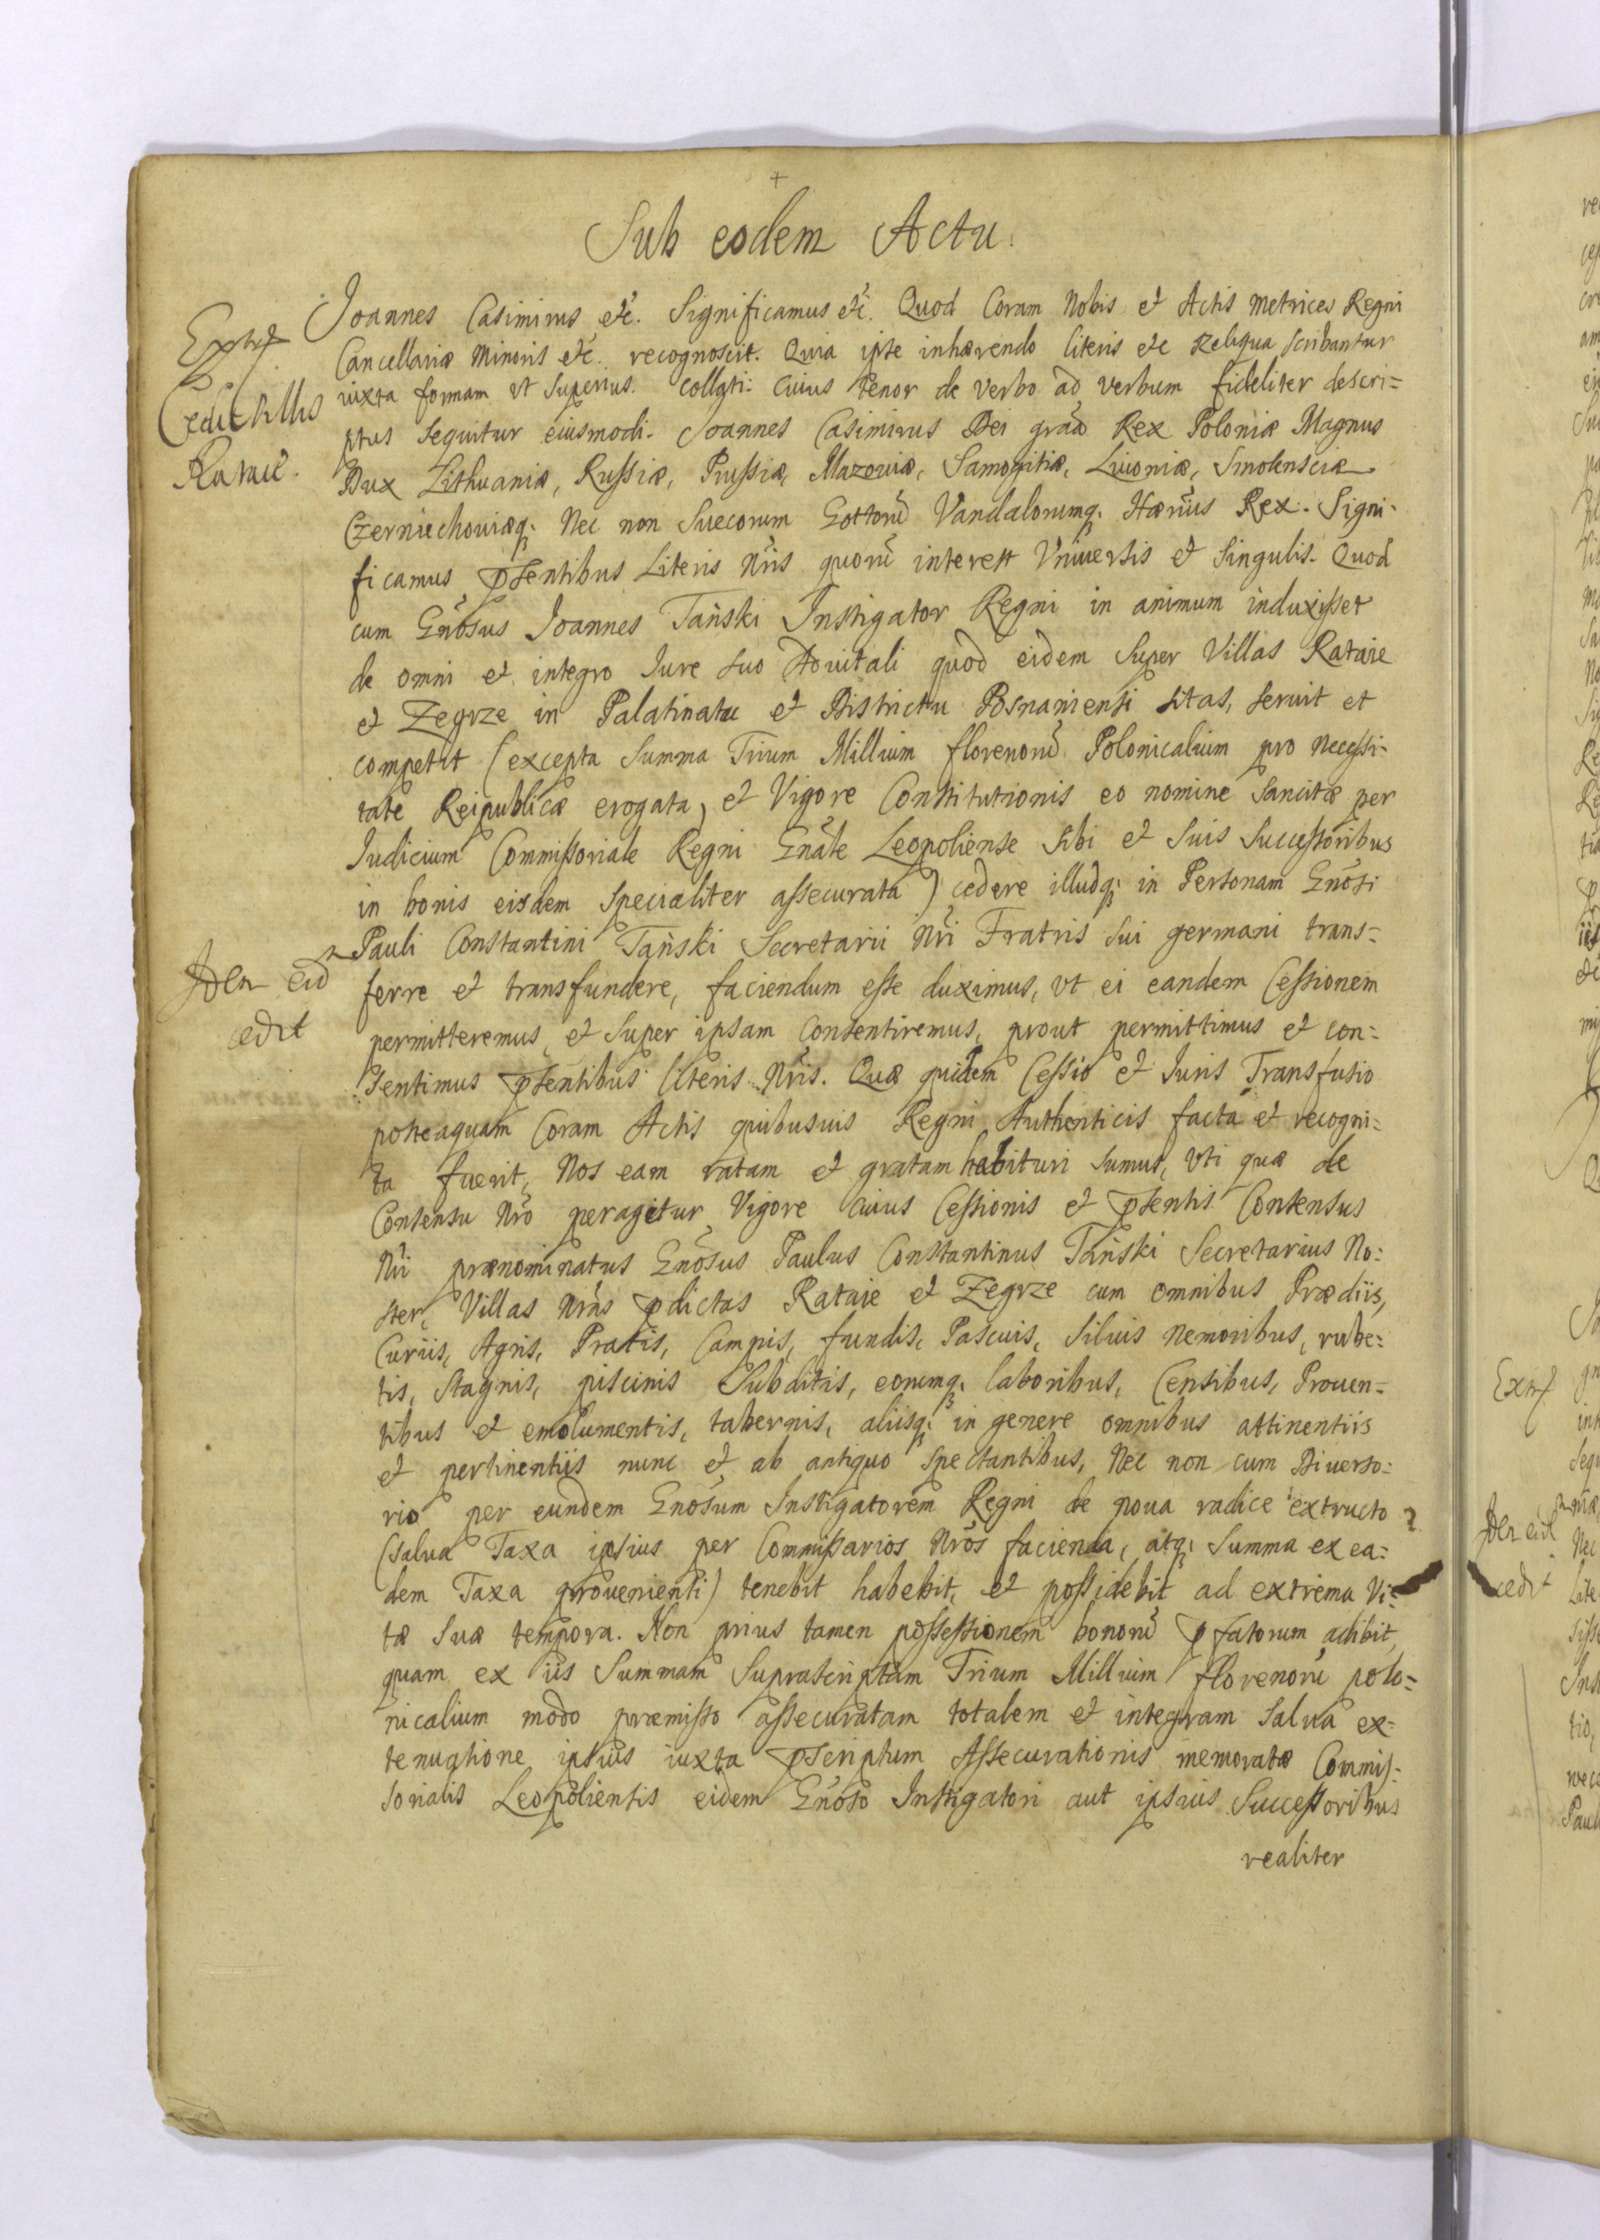 Sub eodem Actu.
Joannes Casimirus etc. Significamus etc. Quod Coram Nobis et Actis Metrices Regni
Cancellariæ Minoris etc. recognoscit. Quia ipse inhærendo literis etc Reliqua scribantur
iuxta formam ut Superius. collati: Cuius tenor de verbo ad verbum fideliter descri=
ptus sequitur eiusmodi. Joannes Casimirus Dei gra͠a Rex Poloniæ Magnus
Dux Lithuaniæ, Russiæ, Prussiæ, Mazoviæ, Samogitiæ, Livoniæ, Smolensciæ
Czerniechoviæq; Nec non Suecorum Gottorū Vandalorumq; Hærius Rex. Signi-
ficamus pñtibus Literis Nr̃is quorū interest Vniversis et Singulis. Quod
cum Gñosus Joannes Tański Instigator Regni in animum induxisset
de omni et integro Iure suo Advitali quod eidem super Villas Rataie
et Zegrze in Palatinatu et Districtu Posnaniensi sitas, servit et
competit (excepta Summa Trium Millium florenorū Polonicalium pro necessi-
tate Reipublicæ erogata, et Vigore Constitutionis eo nomine Sancitæ per
Iudicium Commissoriale Regni Gñale Leopoliense sibi et Suis Successoribus
in bonis eisdem specialiter assecurata) cedere illudq; in Personam Gñosi
Pauli Constantini Tański Secretarii Nr̃i Fratris sui germani trans=
ferre et transfundere, faciendum esse duximus, ut ei eandem Cessionem
permitteremus, et super ipsam Consentiremus, prout permittimus et con=
sentimus pñtibus literis Nr̃is. Quæ quidem Cessio et Iuris Transfusio
posteaquam Coram Actis quibusuis Regni Authenticis facta et recogni=
ta fuerit, Nos eam ratam et gratam habituri sumus, uti quæ de
Consensu Nr̃o peragitur Vigore cuius Cessionis et pñtis Consensus
Nr̃i prænominatus Gñosus Paulus Constantinus Tański Secretarius No=
ster, Villas Nr̃as p̃dictas Rataie et Zegrze cum omnibus Prædiis,
Curiis, Agris, Pratis, Campis, fundis, Pascuis, Siluis Nemoribus, rube=
tis, Stagnis, piscinis Subditis, eorumq; laboribus, Censibus, Proven=
tibus et emolumentis, tabernis, aliisq; in genere omnibus attinentiis
et pertinentiis nunc et ab antiquo spectantibus, Nec non cum Diverso=
rio per eundem Gñosum Instigatorem Regni de nova radice extructo
(salva Taxa ipsius per Commissarios Nr̃os facienda, atq; Summa ex ea=
dem Taxa provenienti) tenebit habebit, et possidebit ad extrema Vi=
tæ Suæ tempora. Non prius tamen possessionem bonorū p̃fatorum adibit,
quam ex iis Summam Suprascriptam Trium Millium florenorū polo=
nicalium modo præmisso assecuratam totalem et integram salva ex=
tenuatione ipsius iuxta p̃scriptum Assecurationis memoratæ Commis=
sorialis Leopoliensis eidem Gñoso Instigatori aut ipsius Successoribus
realiter
Cedit Villas
Rataie.
Idem eid
cedit